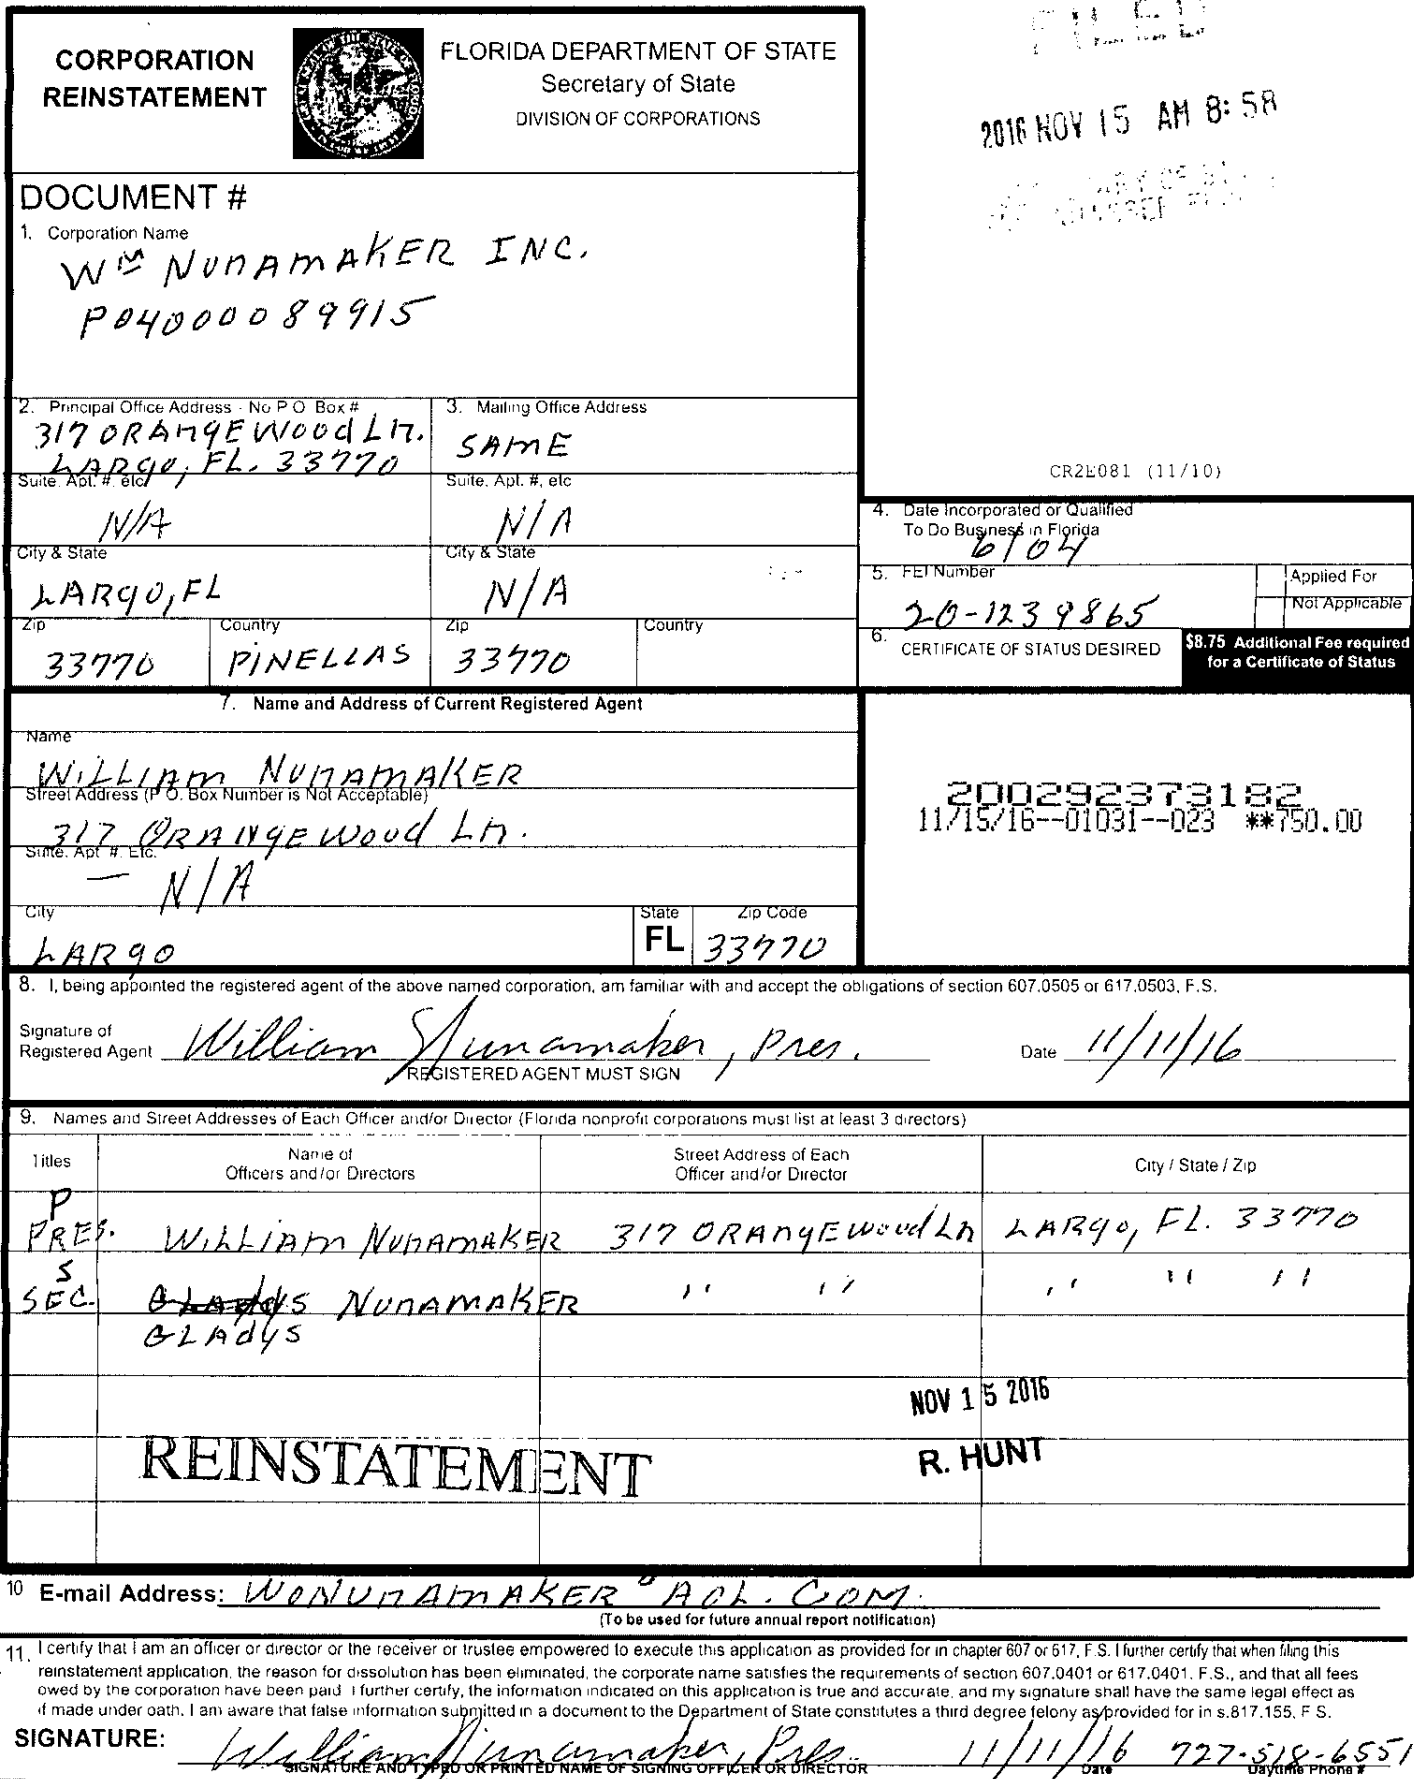 CORPORATION
REINSTATEMENT
FLORIDA DEPARTMENT OF STATE
Secretary of State
DIVISION OF CORPORATIONS
FILED
2016 NOV 15 AM 8:58
DOCUMENT #
1. Corporation Name
Wm NUNAMAKER INC.
P04000089915
2. Principal Office Address - No P O Box #
317 ORANGEWOOD LN.
LARGO, FL. 33770
3. Mailing Office Address
SAME
CR2E081 (11/10)
Suite. Apt. #. etc
N/A
Suite. Apt. #, etc
N/A
4. Date Incorporated or Qualified
To Do Business in Florida
6/04
City & State
LARGO, FL
City & State
N/A
5. FEI Number
20-1239865
Applied For
Not Applicable
Zip
33770
Country
PINELLAS
Zip
33770
Country
6. CERTIFICATE OF STATUS DESIRED
$8.75 Additional Fee required
for a Certificate of Status
7. Name and Address of Current Registered Agent
Name
WILLIAM NUNAMAKER
Street Address (P O. Box Number is Not Acceptable)
317 ORANGEWOOD LN.
Suite. Apt # Etc.
— N/A
City
LARGO
State
FL
Zip Code
33770
200292373182
11/15/16--01031--023 **750.00
8. I, being appointed the registered agent of the above named corporation, am familiar with and accept the obligations of section 607.0505 or 617.0503, F.S.
Signature of
Registered Agent William Nunamaker, Pres. Date 11/11/16
REGISTERED AGENT MUST SIGN
9. Names and Street Addresses of Each Officer and/or Director (Florida nonprofit corporations must list at least 3 directors)
Titles
Name of
Officers and/or Directors
Street Address of Each
Officer and/or Director
City / State / Zip
P
PRES. WILLIAM NUNAMAKER 317 ORANGEWOOD LN LARGO, FL. 33770
S
SEC. GLADYS NUNAMAKER " " " " "
GLADYS
NOV 15 2016
REINSTATEMENT
R. HUNT
10 E-mail Address: WONUNAMAKER @ AOL.COM.
(To be used for future annual report notification)
11. I certify that I am an officer or director or the receiver or trustee empowered to execute this application as provided for in chapter 607 or 617, F.S. I further certify that when filing this
reinstatement application, the reason for dissolution has been eliminated, the corporate name satisfies the requirements of section 607.0401 or 617.0401. F.S., and that all fees
owed by the corporation have been paid I further certify, the information indicated on this application is true and accurate, and my signature shall have the same legal effect as
if made under oath. I am aware that false information submitted in a document to the Department of State constitutes a third degree felony as provided for in s.817.155, F S.
SIGNATURE: William Nunamaker, Pres. 11/11/16 727-518-6551
SIGNATURE AND TYPED OR PRINTED NAME OF SIGNING OFFICER OR DIRECTOR Date Daytime Phone #